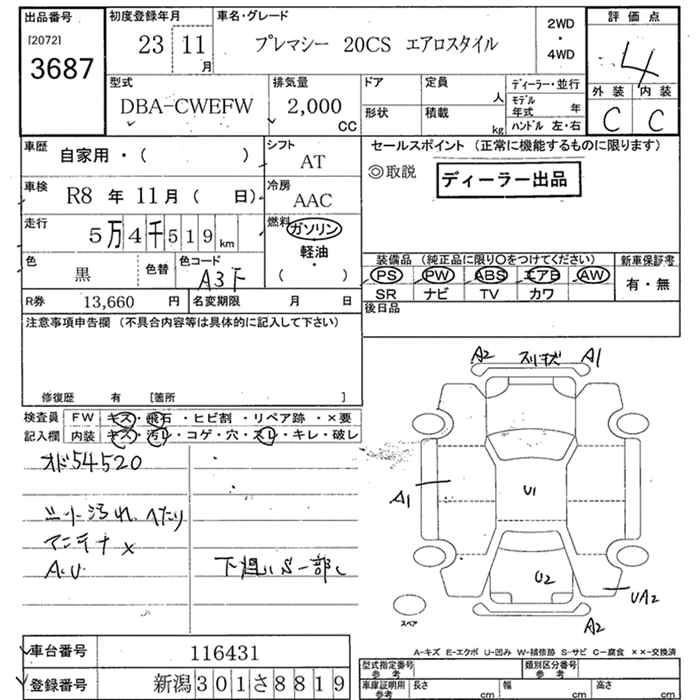 出品番号
[2072]
3687
初度登録年月
23 11月
車名・グレード
プレマシー 20CS エアロスタイル
2WD
・
4WD
評価点
4
外装 内装
C C
型式
DBA-CWEFW
排気量
2,000
CC
ドア
形状
定員
人
積載
kg
ディーラー・並行
モデル年式 年
ハンドル 左・右
車歴
自家用・( )
シフト
AT
車検
R8 年 11月 ( 日)
冷房
AAC
走行
5万4千519 km
燃料
ガソリン
軽油
・
( )
色
黒
色替
色コード
A3F
R券 13,660 円
名変期限 月 日
セールスポイント (正常に機能するものに限ります)
◎取説
ディーラー出品
装備品 (純正品に限り○をつけてください)
PS PW ABS エアB AW
SR ナビ TV カワ
新車保証書
有・無
後日品
注意事項申告欄 (不具合内容等は具体的に記入して下さい)
修復歴 有 [箇所 ]
検査員記入欄
FW キズ・飛石・ヒビ割・リペア跡・×要
内装 キズ・汚レ・コゲ・穴・スレ・キレ・破レ
オド54520
シート汚れ、へたり
アンテナ×
A.U
下廻りS一部C
A2 スリキズ A1
A1
U1
U2
UA2
A2
スペア
A-キズ E-エクボ U-凹み W-補修跡 S-サビ C-腐食 ××-交換済
車台番号 116431
登録番号 新潟301さ8819
型式指定番号
参考
類別区分番号
参考
車庫証明用
参考
長さ cm 幅 cm 高さ cm